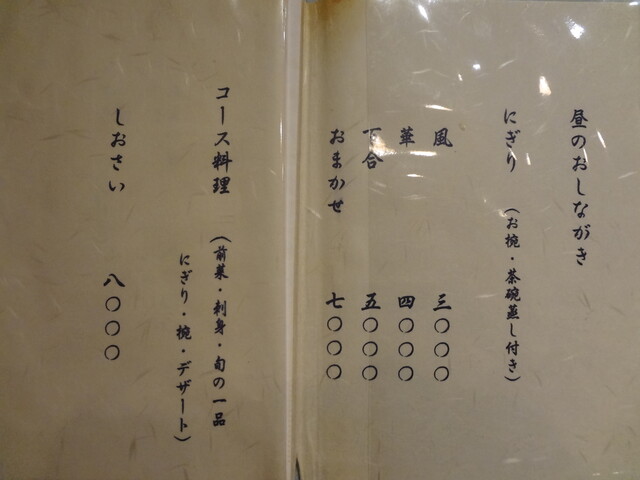 昼のおしながき
にぎり （お椀・茶碗蒸し付き）
風 三〇〇〇
華 四〇〇〇
百合 五〇〇〇
おまかせ 七〇〇〇
コース料理 （前菜・刺身・旬の一品
にぎり・椀・デザート）
しおさい 八〇〇〇